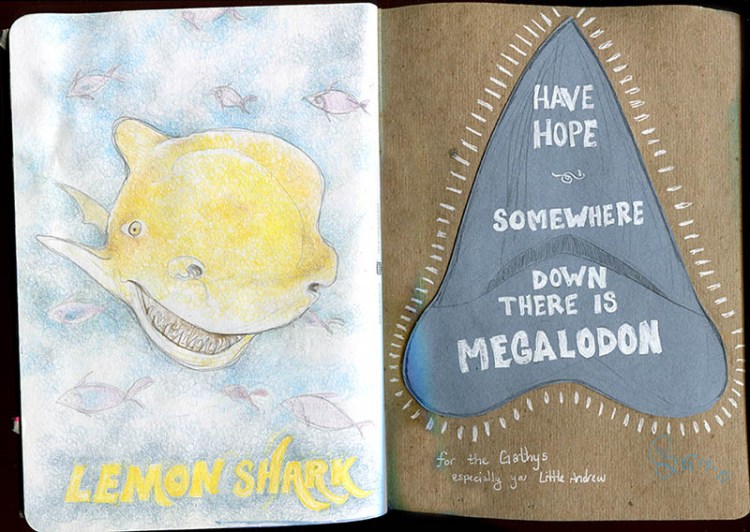 LEMON SHARK
HAVE
HOPE
SOMEWHERE
DOWN
THERE IS
MEGALODON
for the Gathys
especially you Little Andrew